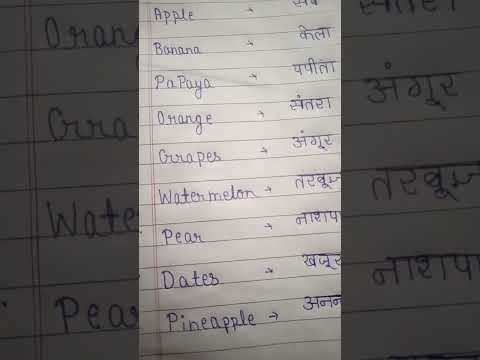 Apple →
Banana → केला
PaPaya → पपीता
Orange → संतरा
Grapes → अंगूर
Watermelon →
Pear →
Dates → खजूर
Pineapple →